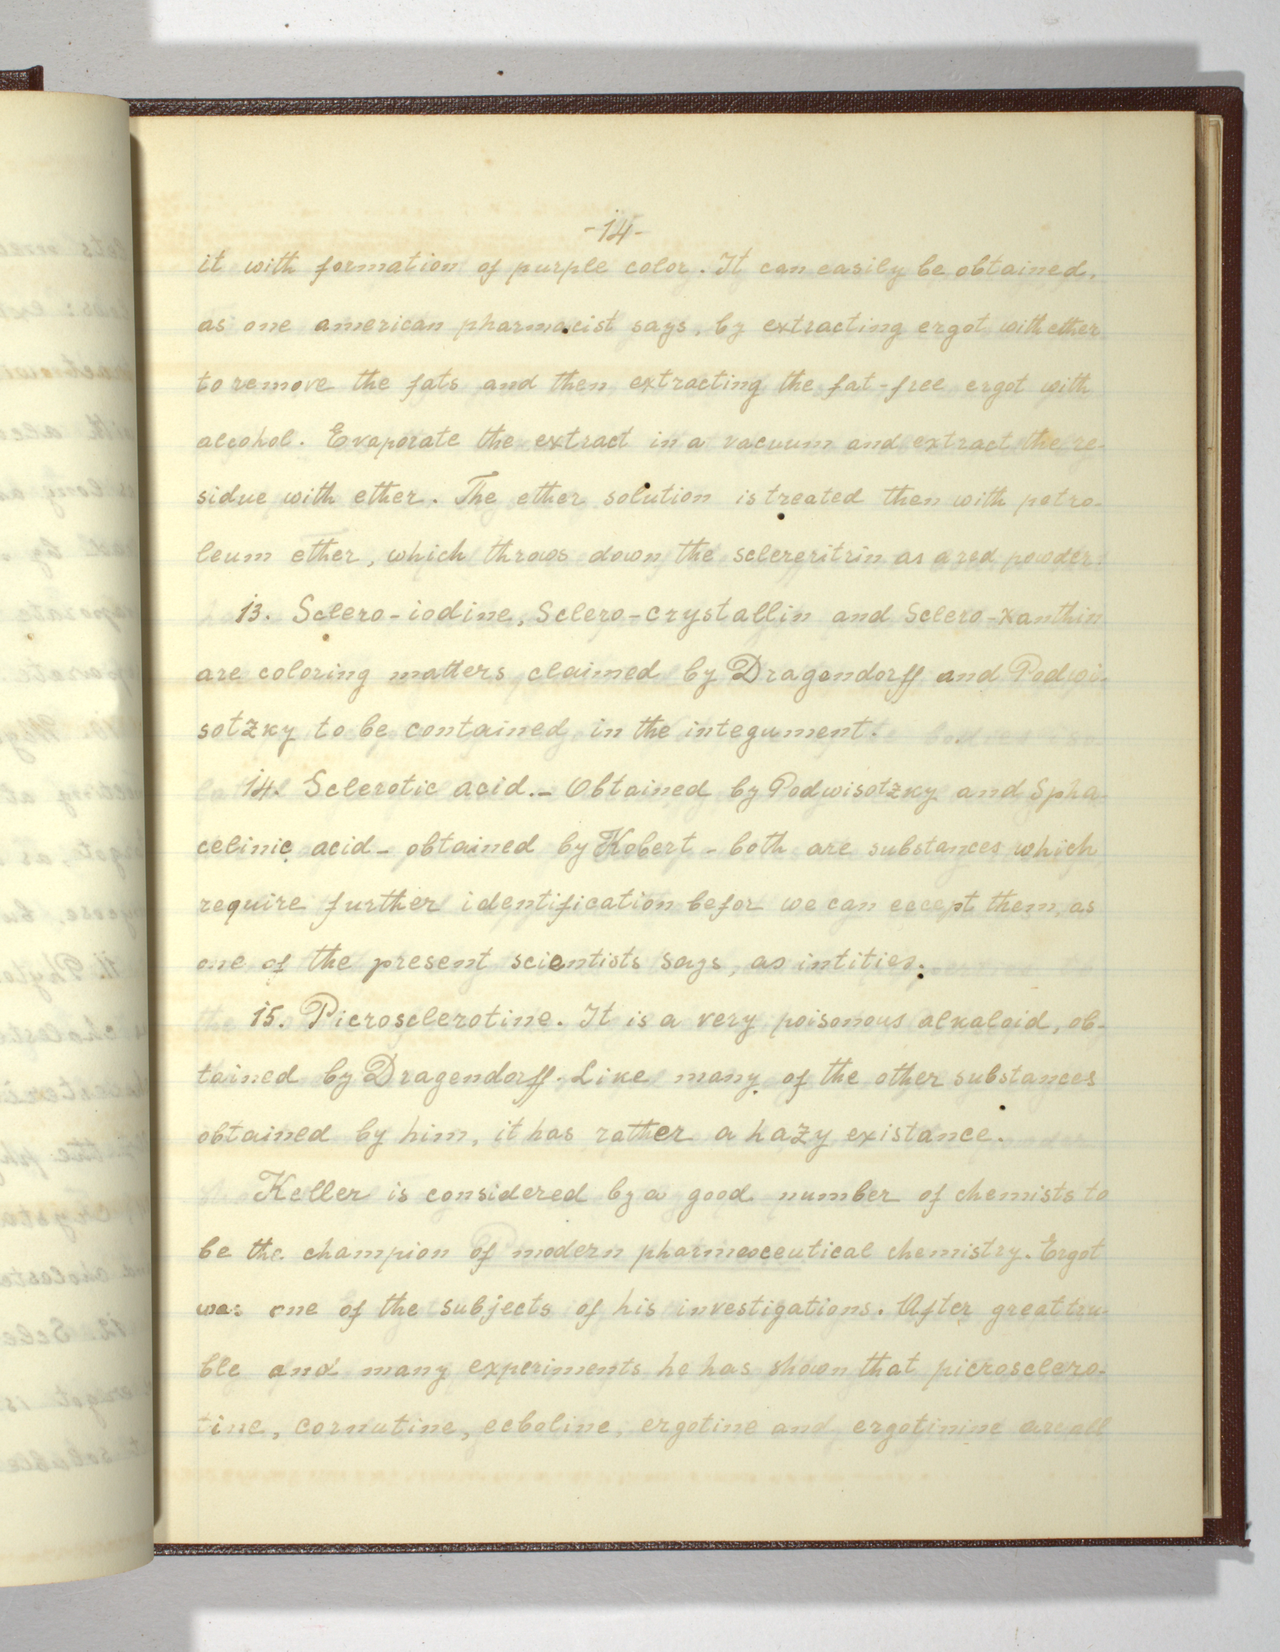 -14-
it with formation of purple color. It can easily be obtained,
as one american pharmacist says, by extracting ergot with ether
to remove the fats and then extracting the fat-free ergot with
alcohol. Evaporate the extract in a vacuum and extract the re-
sidue with ether. The ether solution is treated then with petro-
leum ether, which throws down the sclereritrin as a red powder.
13. Sclero-iodine, Sclero-crystallin and Sclero-xanthin
are coloring matters claimed by Dragendorff and Podwi-
sotzky to be contained in the integument.
14. Sclerotic acid.- Obtained by Podwisotzky and Spha-
celinic acid - obtained by Kobert - both are substances which
require further identification befor we can eccept them, as
one of the present scientists says, as intities.
15. Picrosclerotine. It is a very poisonous alkaloid, ob-
tained by Dragendorff. Like many of the other substances
obtained by him, it has rather a hazy existance.
Keller is considered by a good number of chemists to
be the champion of modern pharmaceutical chemistry. Ergot
was one of the subjects of his investigations. After great tru-
ble and many experiments he has shown that picrosclero-
tine, cornutine, ecboline, ergotine and ergotinine are all